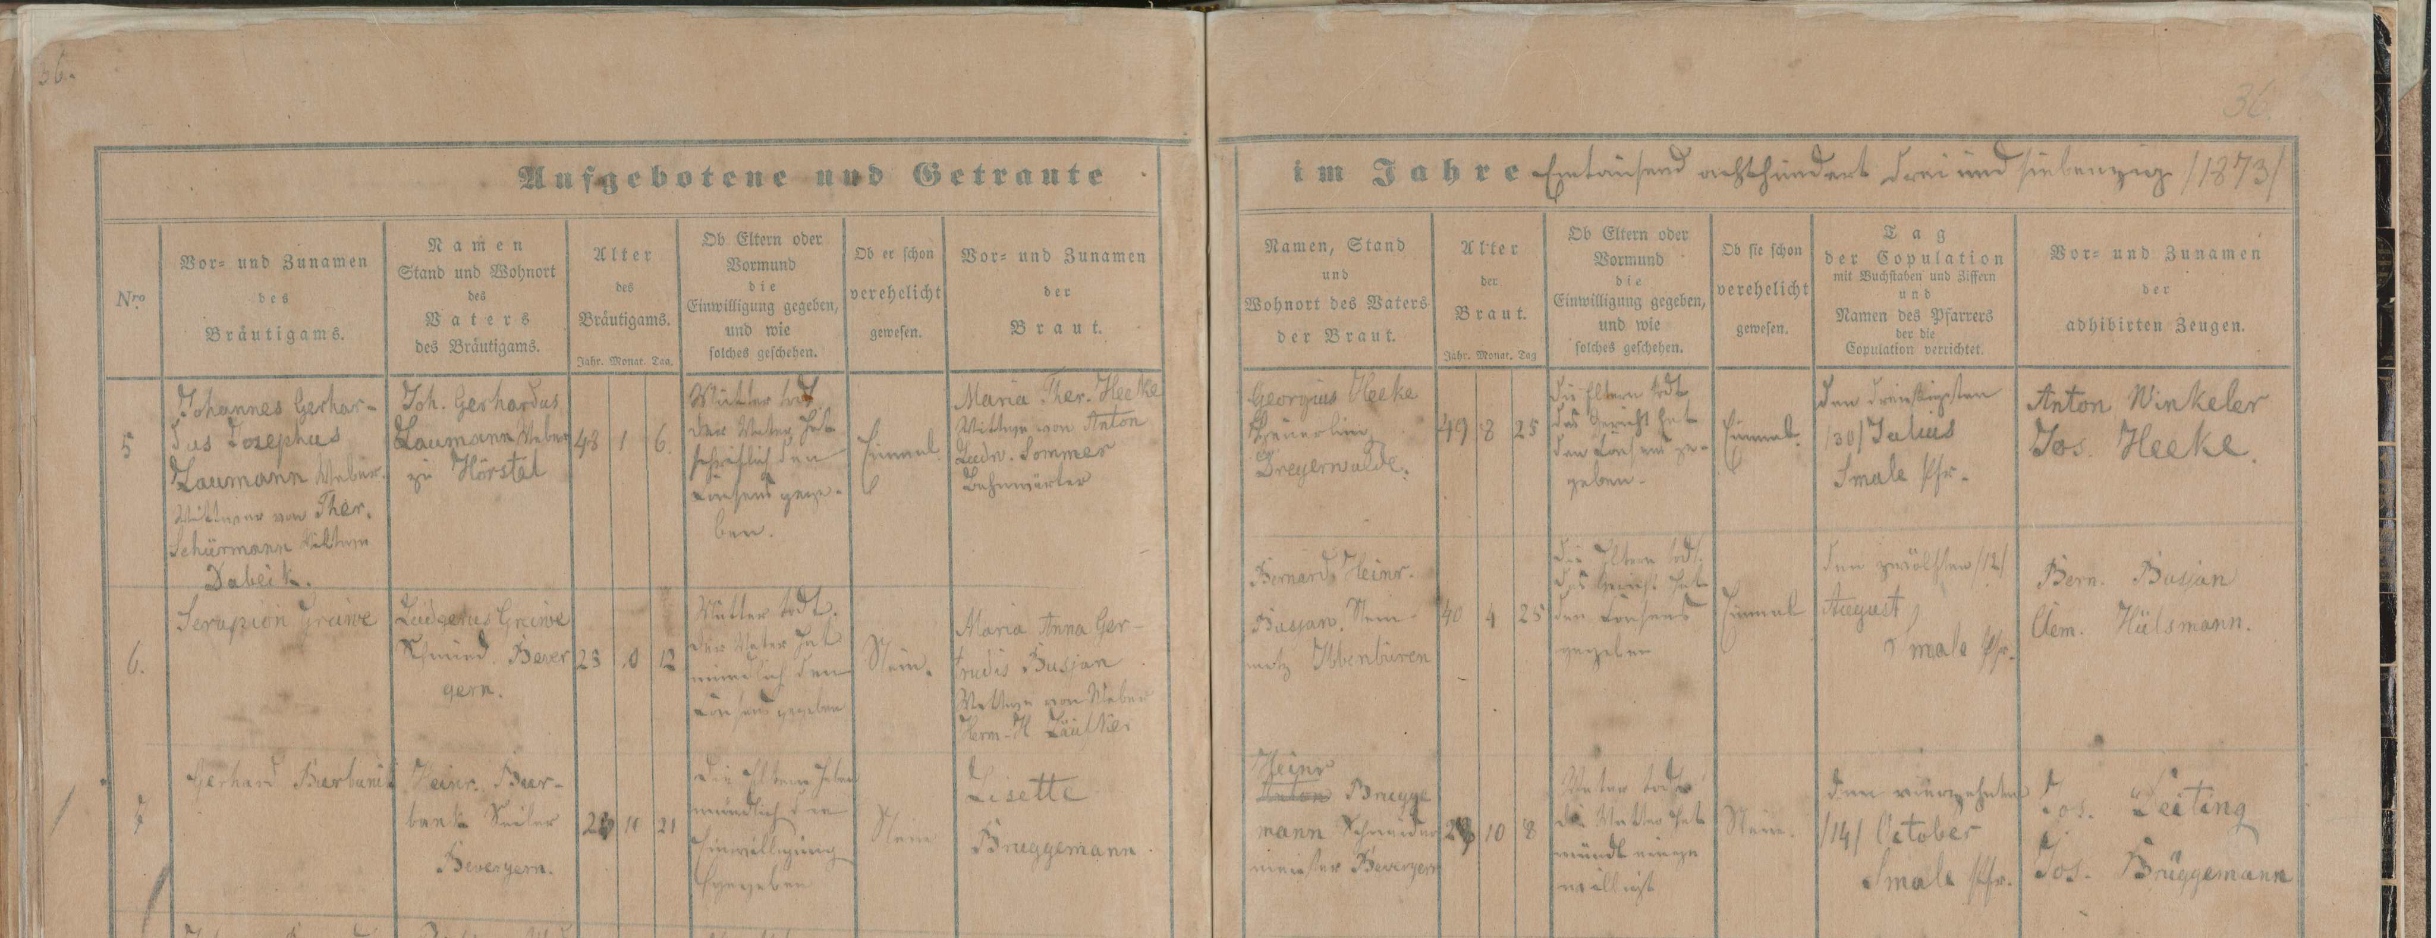 36.
36.
Aufgebotene und Getraute
im Jahre Eintausend achthundert drei und siebenzig /1873/
Nro.
Vor- und Zunamen
des
Bräutigams.
Namen
Stand und Wohnort
des
Vaters
des Bräutigams.
Alter
des
Bräutigams.
Jahr. Monat. Tag.
Ob Eltern oder
Vormund
die
Einwilligung gegeben,
und wie
solches geschehen.
Ob er schon
verehelicht
gewesen.
Vor- und Zunamen
der
Braut.
Namen, Stand
und
Wohnort des Vaters
der Braut.
Alter
der
Braut.
Jahr. Monat. Tag
Ob Eltern oder
Vormund
die
Einwilligung gegeben,
und wie
solches geschehen.
Ob sie schon
verehelicht
gewesen.
Tag
der Copulation
mit Buchstaben und Ziffern
und
Namen des Pfarrers
der die
Copulation verrichtet.
Vor- und Zunamen
der
adhibirten Zeugen.
5
Johannes Gerhar-
dus Josephus
Laumann Weber
Wittwer von Ther.
Schürmann Wittwe
Dabeck.
Joh. Gerhardus
Laumann Weber
zu Hörstel
48 1 6.
Mutter todt
der Vater hat
schriftlich den
Consens gege-
ben.
Einmal
Maria Ther. Heeke
Wittwe von Anton
Ludw. Sommer
Bahnwärter
Georgius Heeke
Heuerling
Dreyerwalde.
49 8 25
die Eltern todt
das Gericht hat
den Consens ge-
geben.
Einmal.
den dreißigsten
/30/ Julius
Smale Pfr.
Anton Winkeler
Jos. Heeke.
6.
Serapion Grawe
Ludgerus Grawe
Schmied. Bever
gern.
23 0 12
Mutter todt.
der Vater hat
mündlich den
Consens gegeben
Nein.
Maria Anna Ger-
trudis Busjan
Wittwe von Weber
Herm. H.
Bernard Heinr.
Busjan. Stein-
metz Ibbenbüren
40 4 25
die Eltern todt.
das Gericht hat
den Consens
gegeben
Einmal
den zwölften /12/
August
Smale Pfr.
Bern. Busjan
Clem. Hülsmann.
7
Gerhard
Heinr. Baar-
Seiler
Bevergern.
11 21
Die Eltern haben
mündlich die
Einwilligung
gegeben
Nein
Lisette
Bruggemann
Heinr
Anton Brugge
mann Schneider
meister Bevergern
10 8
Vater todt
die Mutter hat
mündl einge
willigt
Nein.
den vierzehnten
/14/ October
Smale Pfr.
Jos. Leiting
Jos. Brüggemann